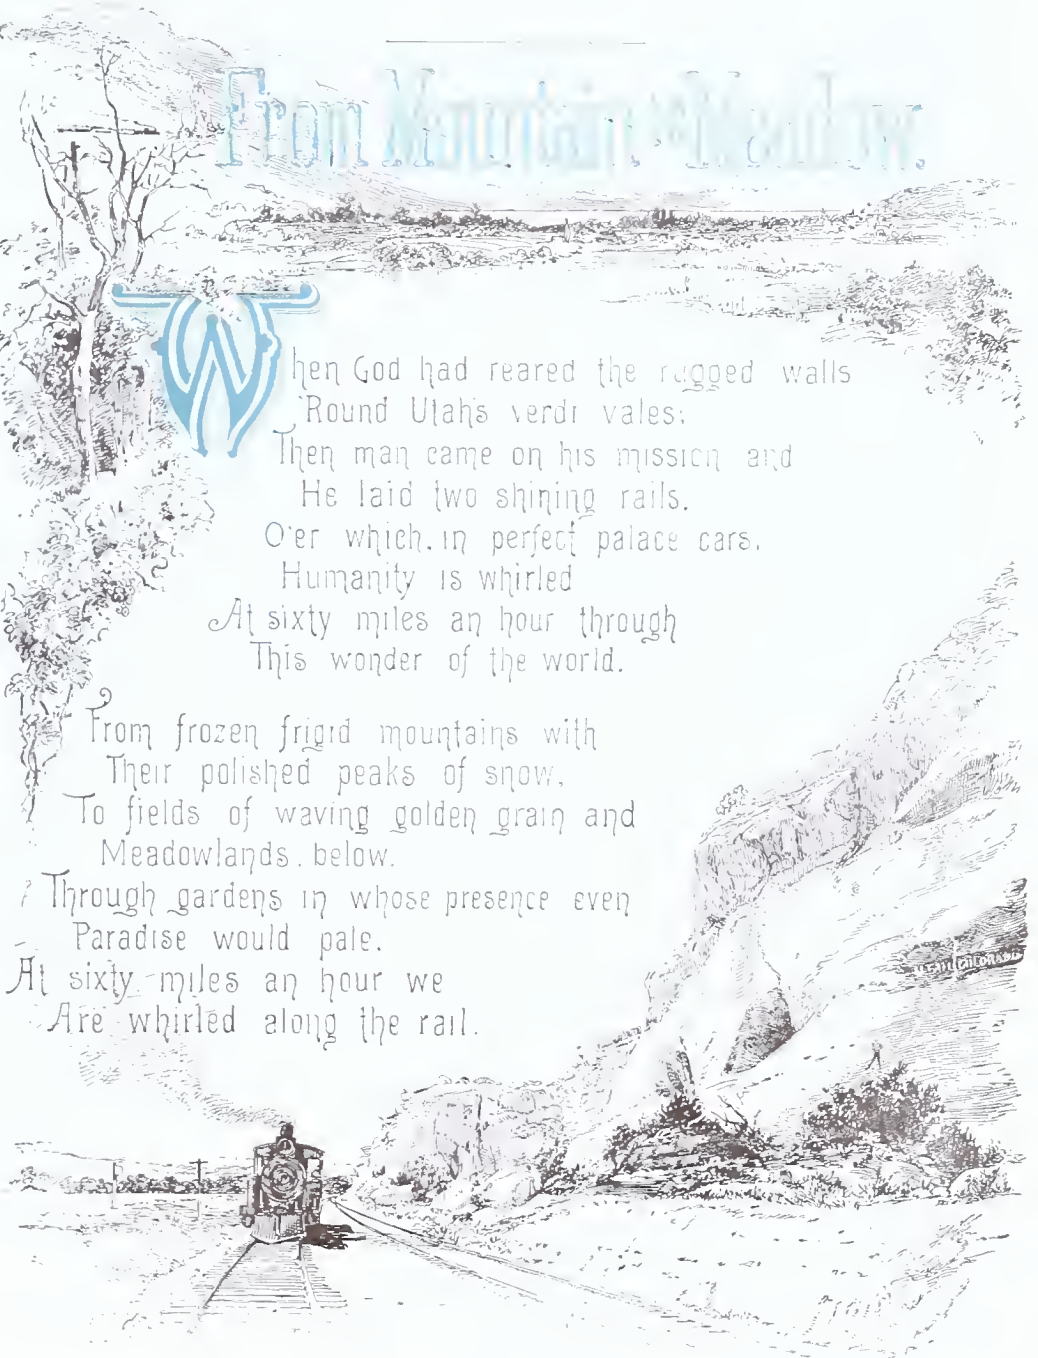 From Mountain to Meadow.
When God had reared the rugged walls
'Round Utah's verdt vales;
Then man came on his mission and
He laid two shining rails.
O'er which, in perfect palace cars,
Humanity is whirled
At sixty miles an hour through
This wonder of the world.
From frozen frigid mountains with
Their polished peaks of snow,
To fields of waving golden grain and
Meadowlands, below.
Through gardens in whose presence even
Paradise would pale.
At sixty miles an hour we
Are whirled along the rail.
UTAH COLORADO